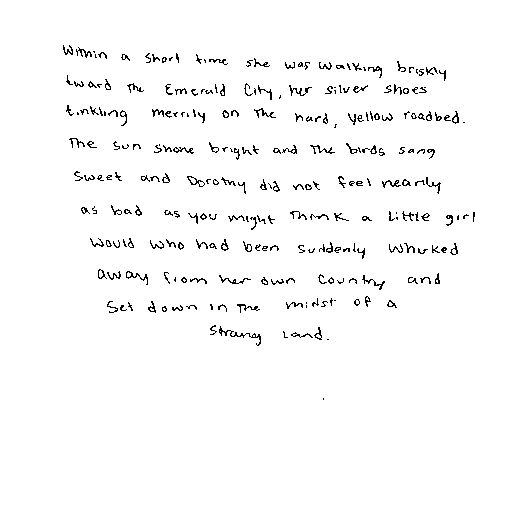 Within a short time she was walking briskly
tward the Emerald City, her silver shoes
tinkling merrily on the hard, yellow roadbed.
The sun shone bright and the birds sang
sweet and Dorothy did not feel nearly
as bad as you might think a little girl
would who had been suddenly whisked
away from her own country and
set down in the midst of a
strang land.